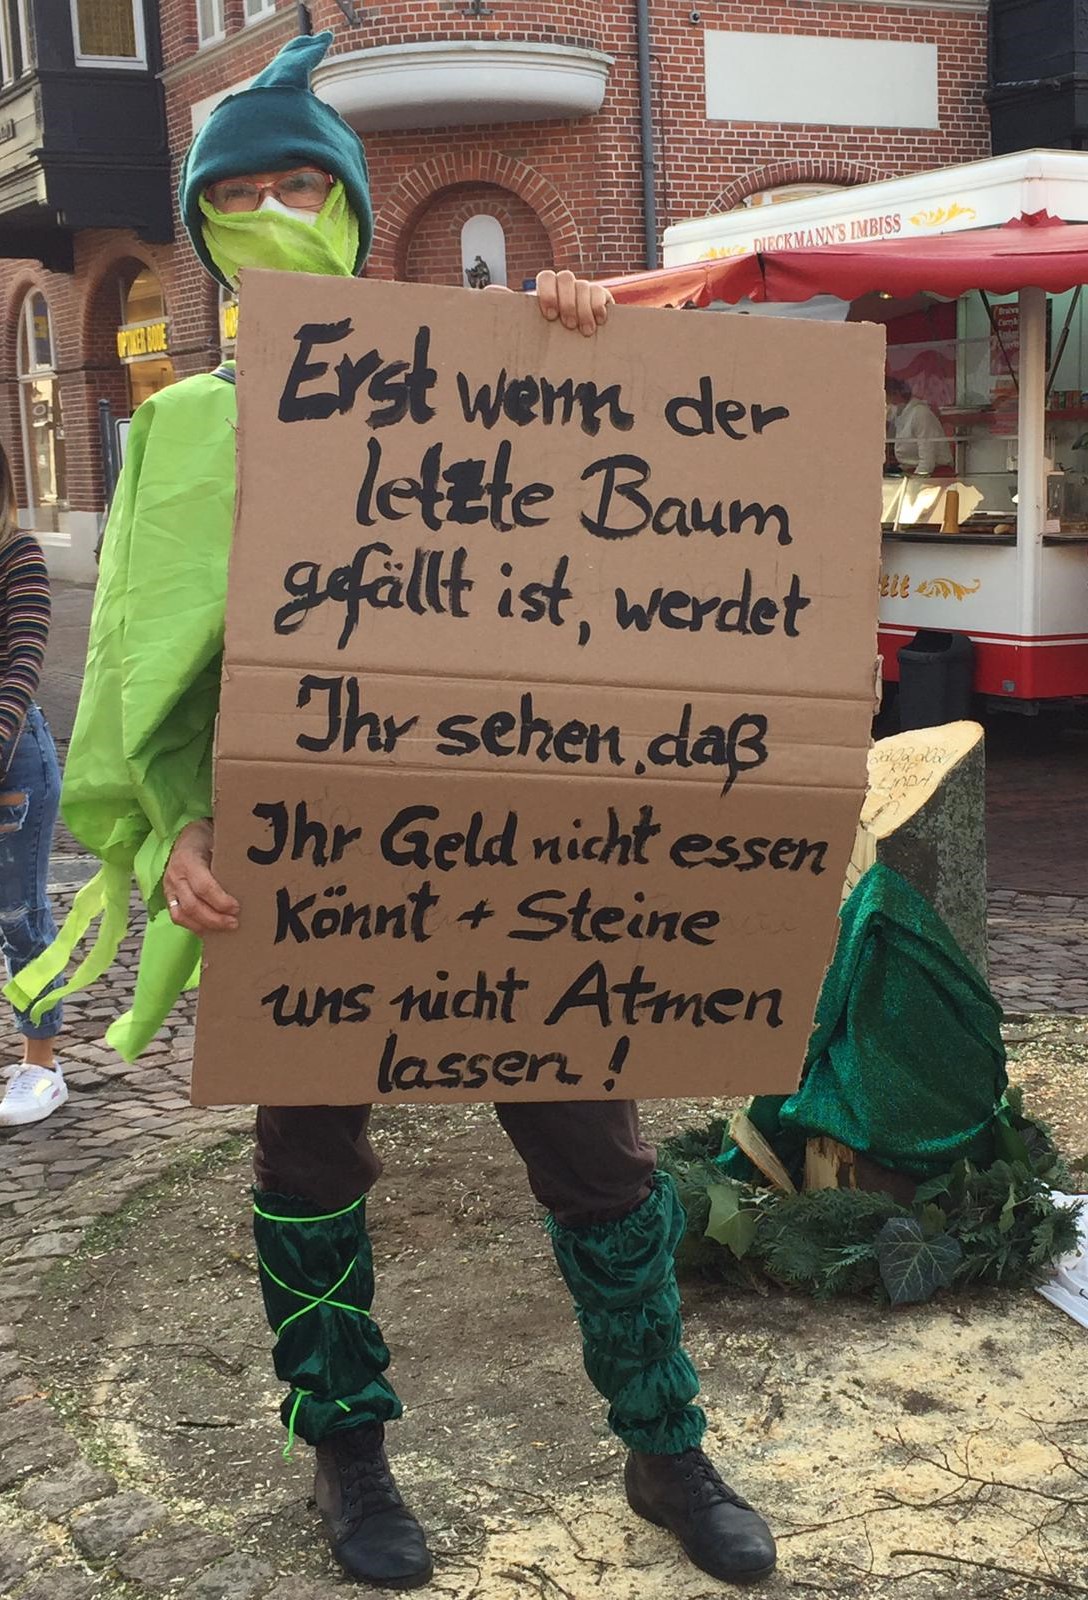 DIECKMANN'S IMBISS
OPTIKER BODE
Erst wenn der
letzte Baum
gefällt ist, werdet
Ihr sehen, daß
Ihr Geld nicht essen
könnt + Steine
uns nicht Atmen
lassen!